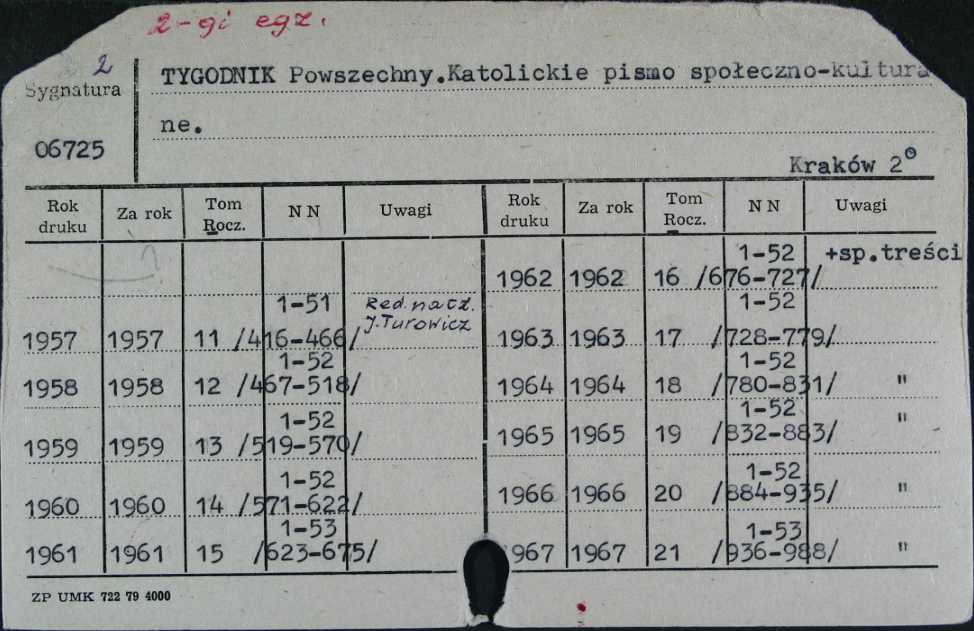 2-gi egz.
2
Sygnatura
TYGODNIK Powszechny.Katolickie pismo społeczno-kultura
ne.
06725
Kraków 2°
Rok druku Za rok Tom Rocz. N N Uwagi Rok druku Za rok Tom Rocz. N N Uwagi
1-52 +sp.treści
1962 1962 16 /676-727/
1-51 Red. nacz. 1-52
J. Turowicz
1957 1957 11 /416-466/ 1963 1963 17 /728-779/
1-52 1-52
1958 1958 12 /467-518/ 1964 1964 18 /780-831/ "
1-52 1-52
1959 1959 13 /519-570/ 1965 1965 19 /832-883/ "
1-52 1-52
1960 1960 14 /571-622/ 1966 1966 20 /884-935/ "
1-53 1-53
1961 1961 15 /623-675/ 1967 1967 21 /936-988/ "
ZP UMK 722 79 4000